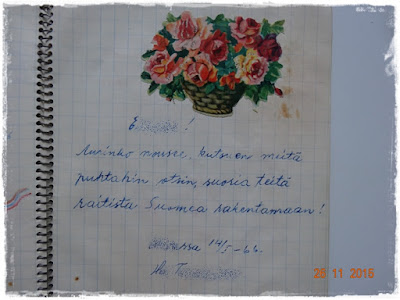 E !
Aurinko nousee, kutsuen meitä
puhtahin otsin, suoria teitä
raitista Suomea rakentamaan!
ssa 14/5 -66.
26 11 2015